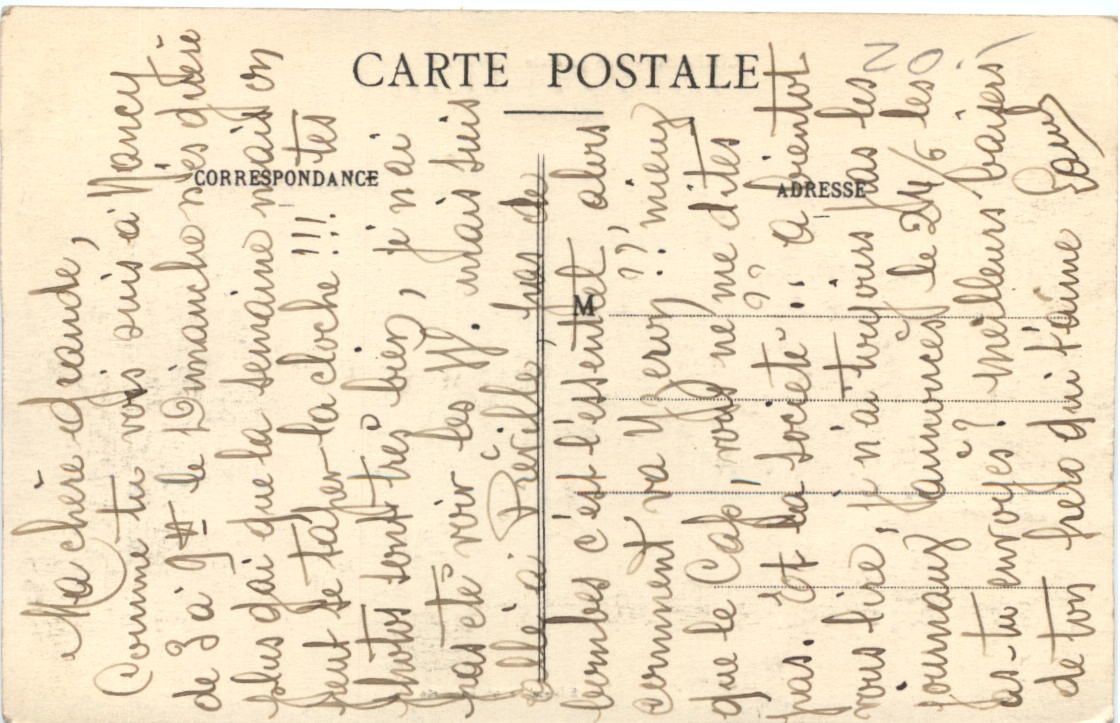 CARTE POSTALE
CORRESPONDANCE
ADRESSE
M
20.-
Ma chère grande,
Comme tu vois suis à Nancy
de 3 à 9 H le Dimanche mes guère
plus gai que la semaine mais on
peut se taper la cloche !!! tes
photos sont très bien, je n'ai
pas été voir les W. mais suis
allé à Préville, pas de
bombes c'est l'essentiel alors
comment va Yerox ?? mieux
que le Cab, vous ne me dites
pas. Et la société ?? A bientôt
vous lire, je n'ai toujours pas les
journaux annoncés, le 24/6 les
as-tu envoyés? Meilleurs baisers
de ton frero qui t'aime Paul